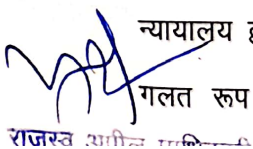 न्यायालय
गलत रूप
राजस्व अपील